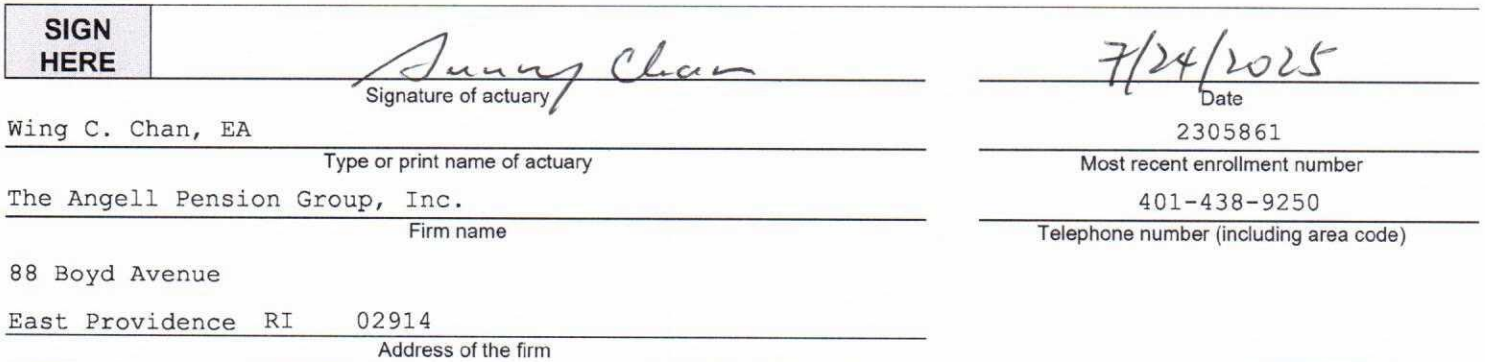 SIGN
HERE
Sunny Chan
7/24/2025
Signature of actuary
Date
Wing C. Chan, EA
2305861
Type or print name of actuary
Most recent enrollment number
The Angell Pension Group, Inc.
401-438-9250
Firm name
Telephone number (including area code)
88 Boyd Avenue
East Providence RI 02914
Address of the firm